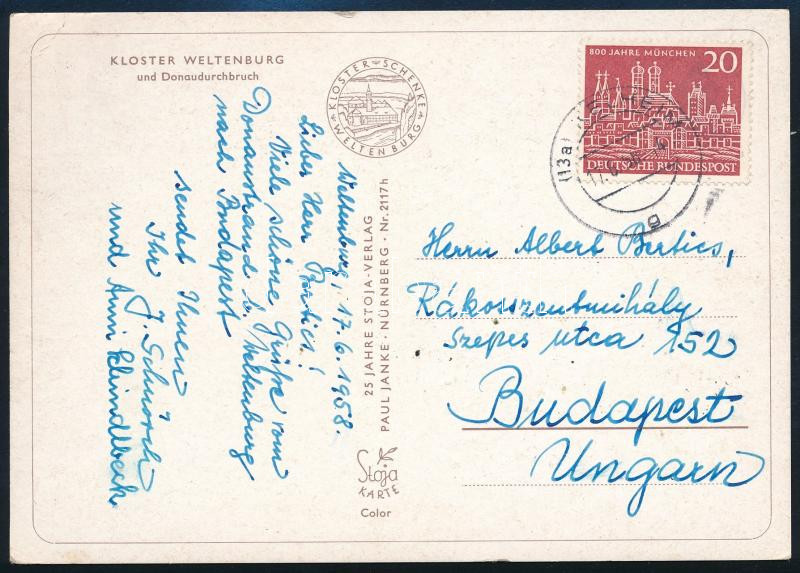 KLOSTER WELTENBURG
und Donaudurchbruch
KLOSTER-SCHENKE
WELTENBURG
Weltenburg, 17.6.1958.
Lieber Herr Bertics!
Viele schöne Grüße vom
Donaustrand b. Weltenburg
nach Budapest
sendet Ihnen
Ihr J. Schnörch
und Anni
25 JAHRE STOJA-VERLAG
PAUL JANKE · NÜRNBERG · Nr. 2117h
Stoja
KARTE
Color
800 JAHRE MÜNCHEN
20
DEUTSCHE BUNDESPOST
(13a)
Herrn Albert Bertics,
Rákosszentmihály
Szepes utca 152
Budapest
Ungarn